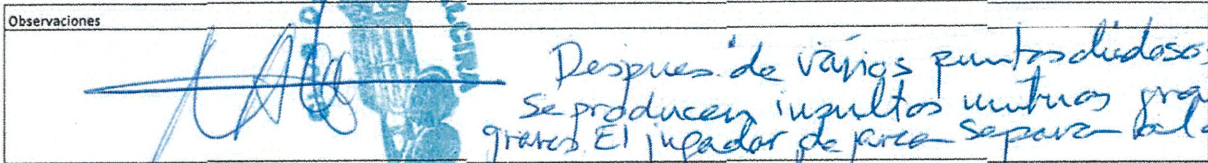 Observaciones
Despues de varios puntos dudosos
se producen insultos mutuos
graves. El jugador de separa